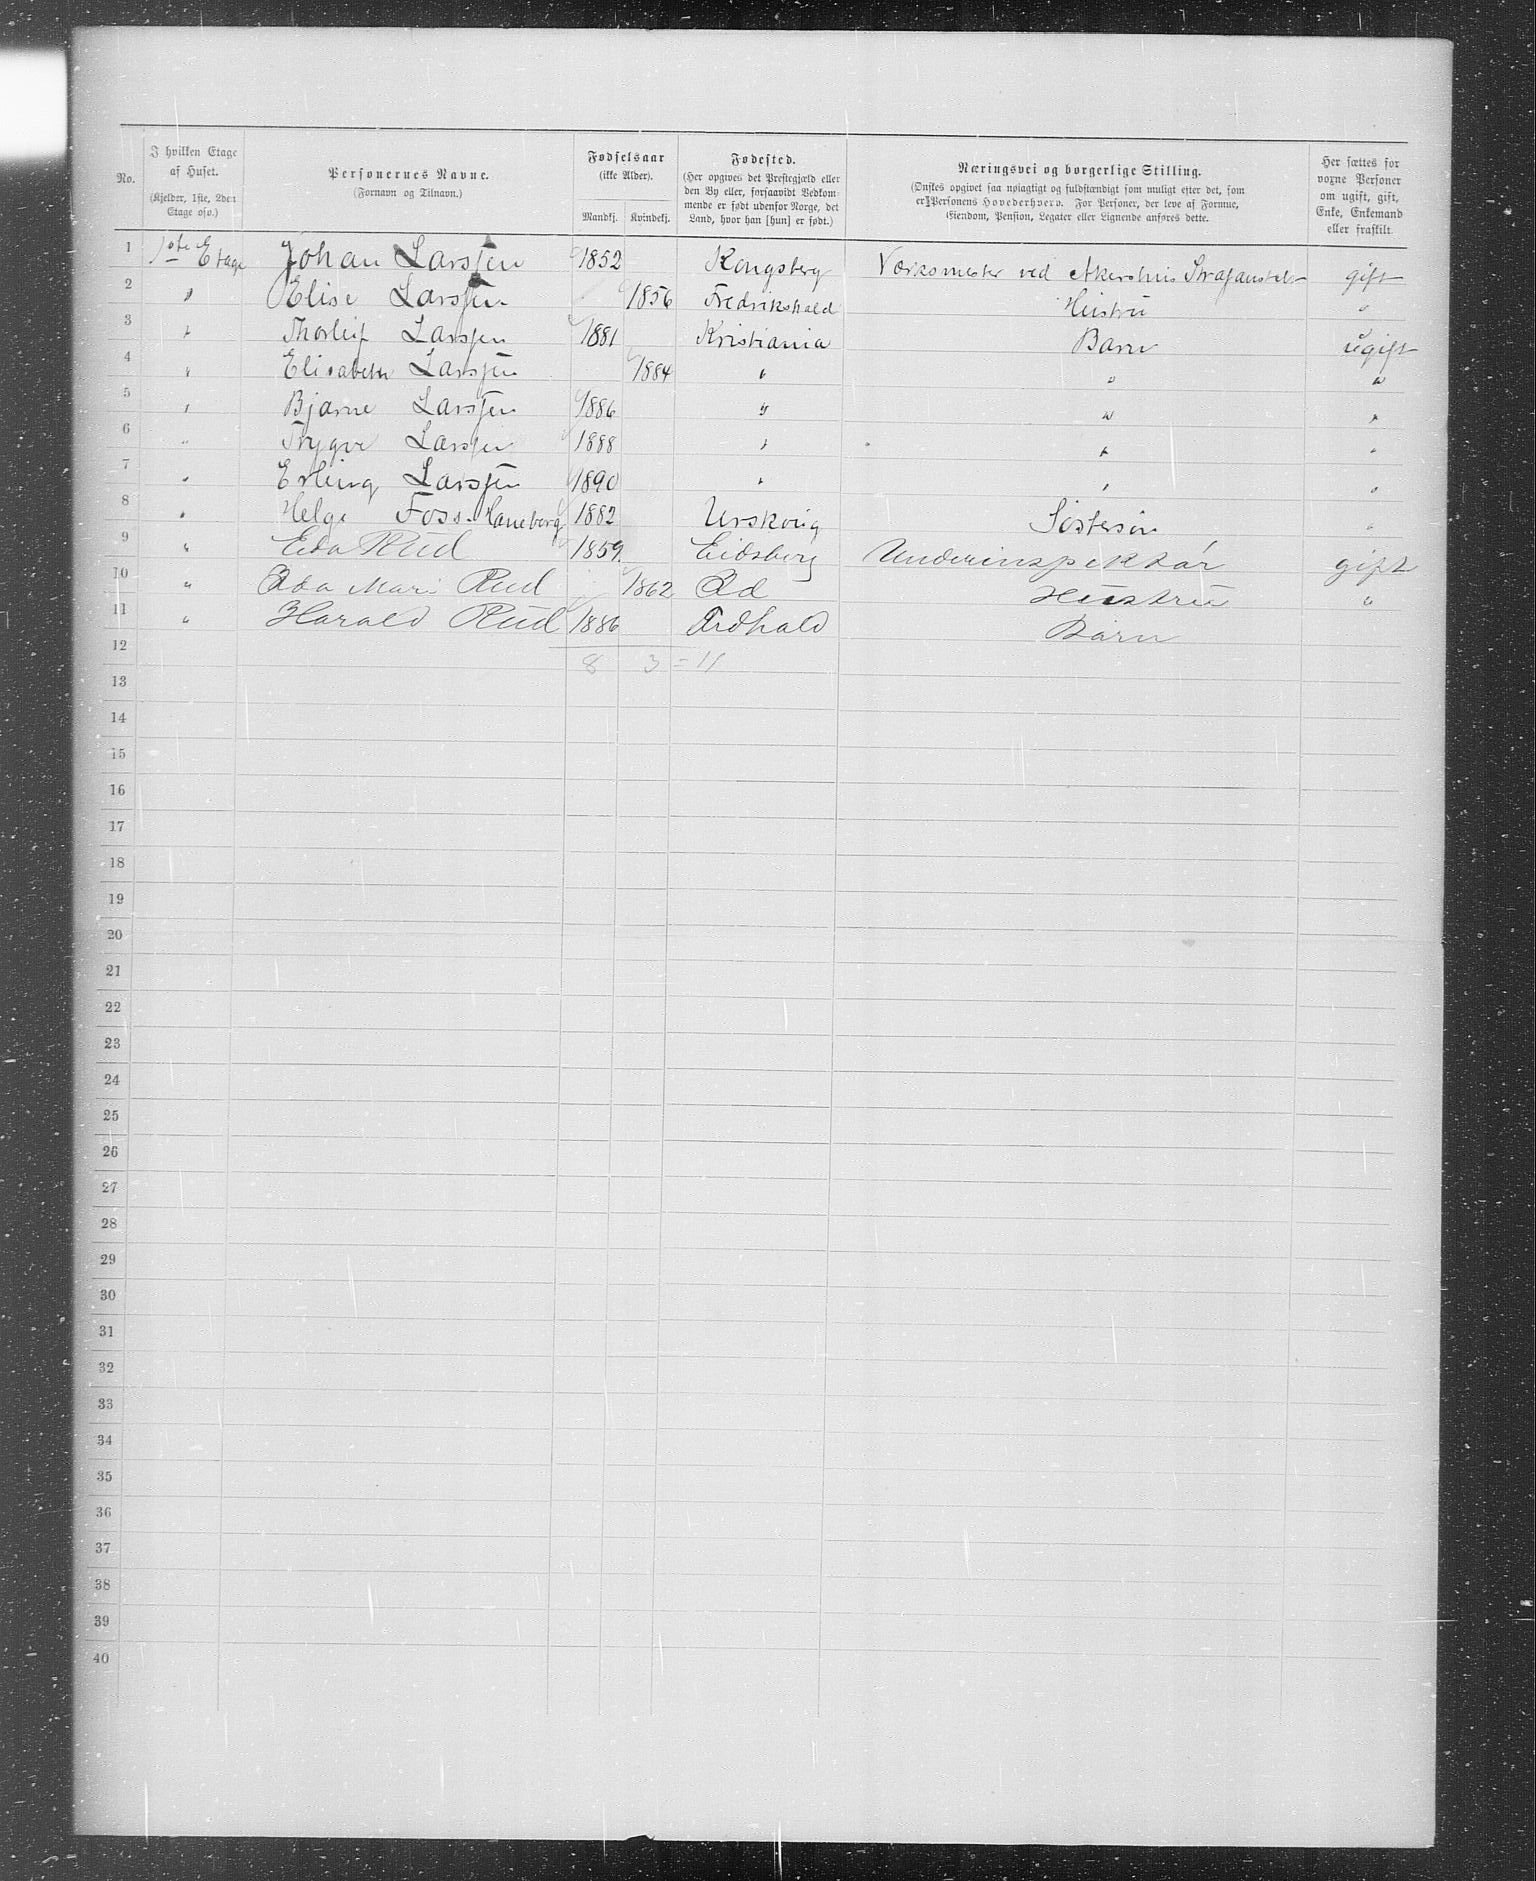 No.
I hvilken Etage af Huset.
(Kjelder, 1ste, 2den Etage osv.)
Personernes Navne.
(Fornavn og Tilnavn.)
Fødselsaar
(ikke Alder).
Mandkj. Kvindekj.
Fødested.
(Her opgives det Prestegjæld eller
den By eller, forsaavidt Vedkom-
mende er født udenfor Norge, det
Land, hvor han [hun] er født.)
Næringsvei og borgerlige Stilling.
(Ønskes opgivet saa nøiagtigt og fuldstændigt som muligt efter det, som
er Personens Hovederhverv. For Personer, der leve af Formue,
Eiendom, Pension, Legater eller Lignende anføres dette.
Her sættes for
voxne Personer
om ugift, gift,
Enke, Enkemand
eller fraskilt.
1 1ste Etage Johan Larssen 1852 Kongsberg Værksmester ved Akershus Strafanstalt gift
2 " Elise Larssen 1856 Fredrikshald Hustru "
3 " Thorleif Larssen 1881 Kristiania Barn ugift
4 " Elisabeth Larssen 1884 " " "
5 " Bjarne Larssen 1886 " " "
6 " Trygve Larssen 1888 " " "
7 " Erling Larssen 1890 " " "
8 " Helge Foss-Haneborg 1882 Urskoug Søstersøn "
9 " Rud 1859 Eidsberg Underinspektør gift
10 " Mari Rud 1862 Id Hustru "
11 " Harald Rud 1886 Frdhald Barn
12 8 3 = 11
13
14
15
16
17
18
19
20
21
22
23
24
25
26
27
28
29
30
31
32
33
34
35
36
37
38
39
40